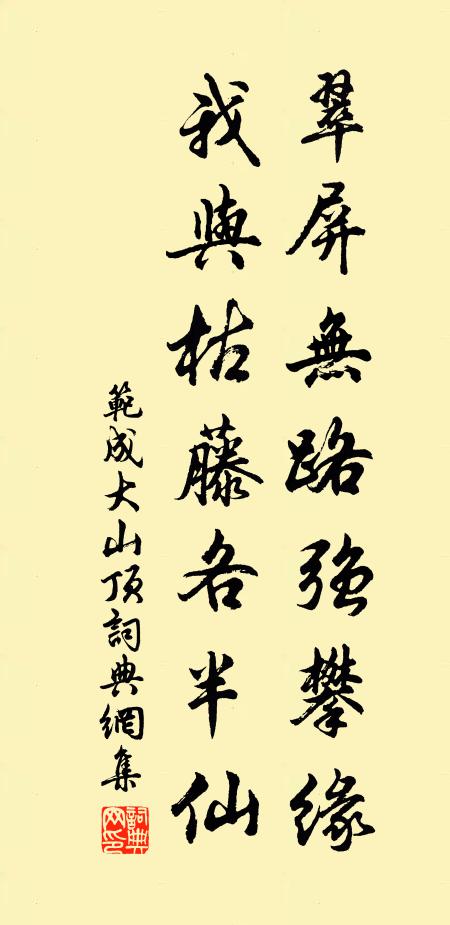 翠屏無路強攀緣
我與枯藤各半仙
範成大山頂詞典網集
詞典網印